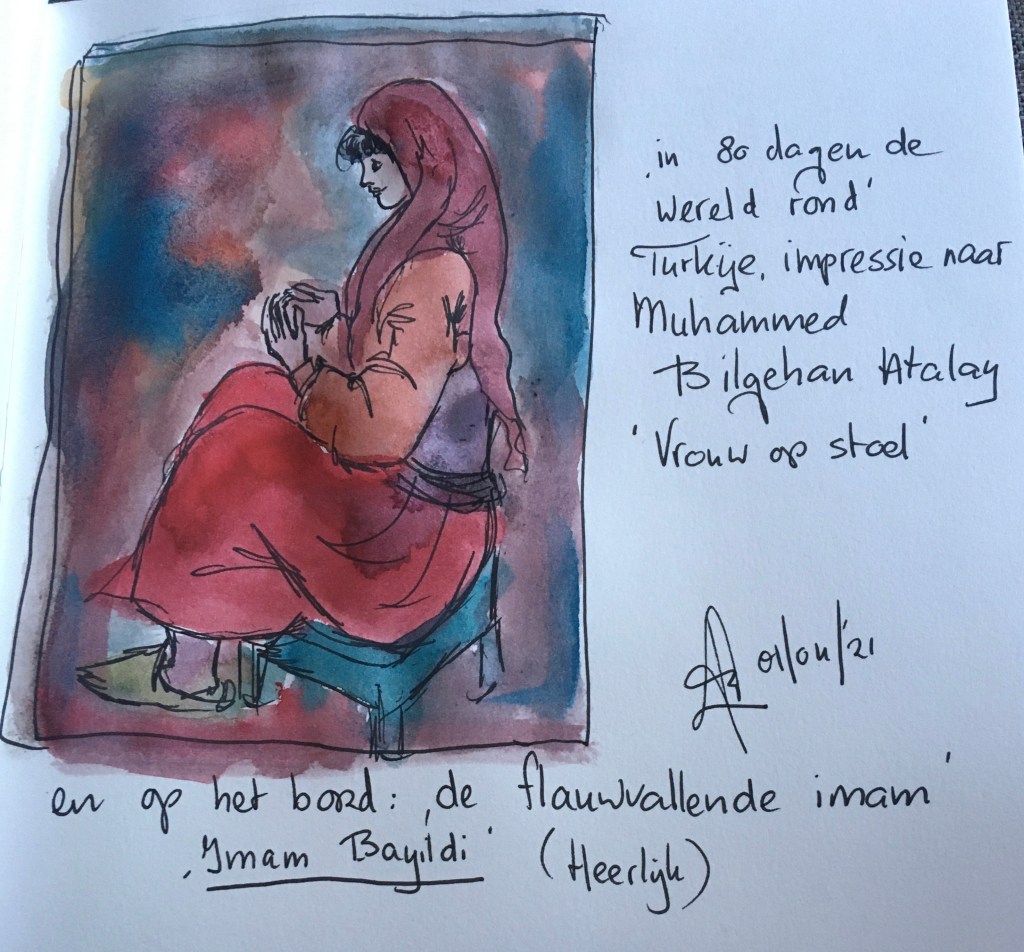 ‚in 80 dagen de
wereld rond'
Turkije, impressie naar
Muhammed
Bilgehan Atalay
'Vrouw op stoel'
01/04/'21
en op het bord: ‚de flauwvallende imam'
‚Imam Bayıldi' (Heerlijk)